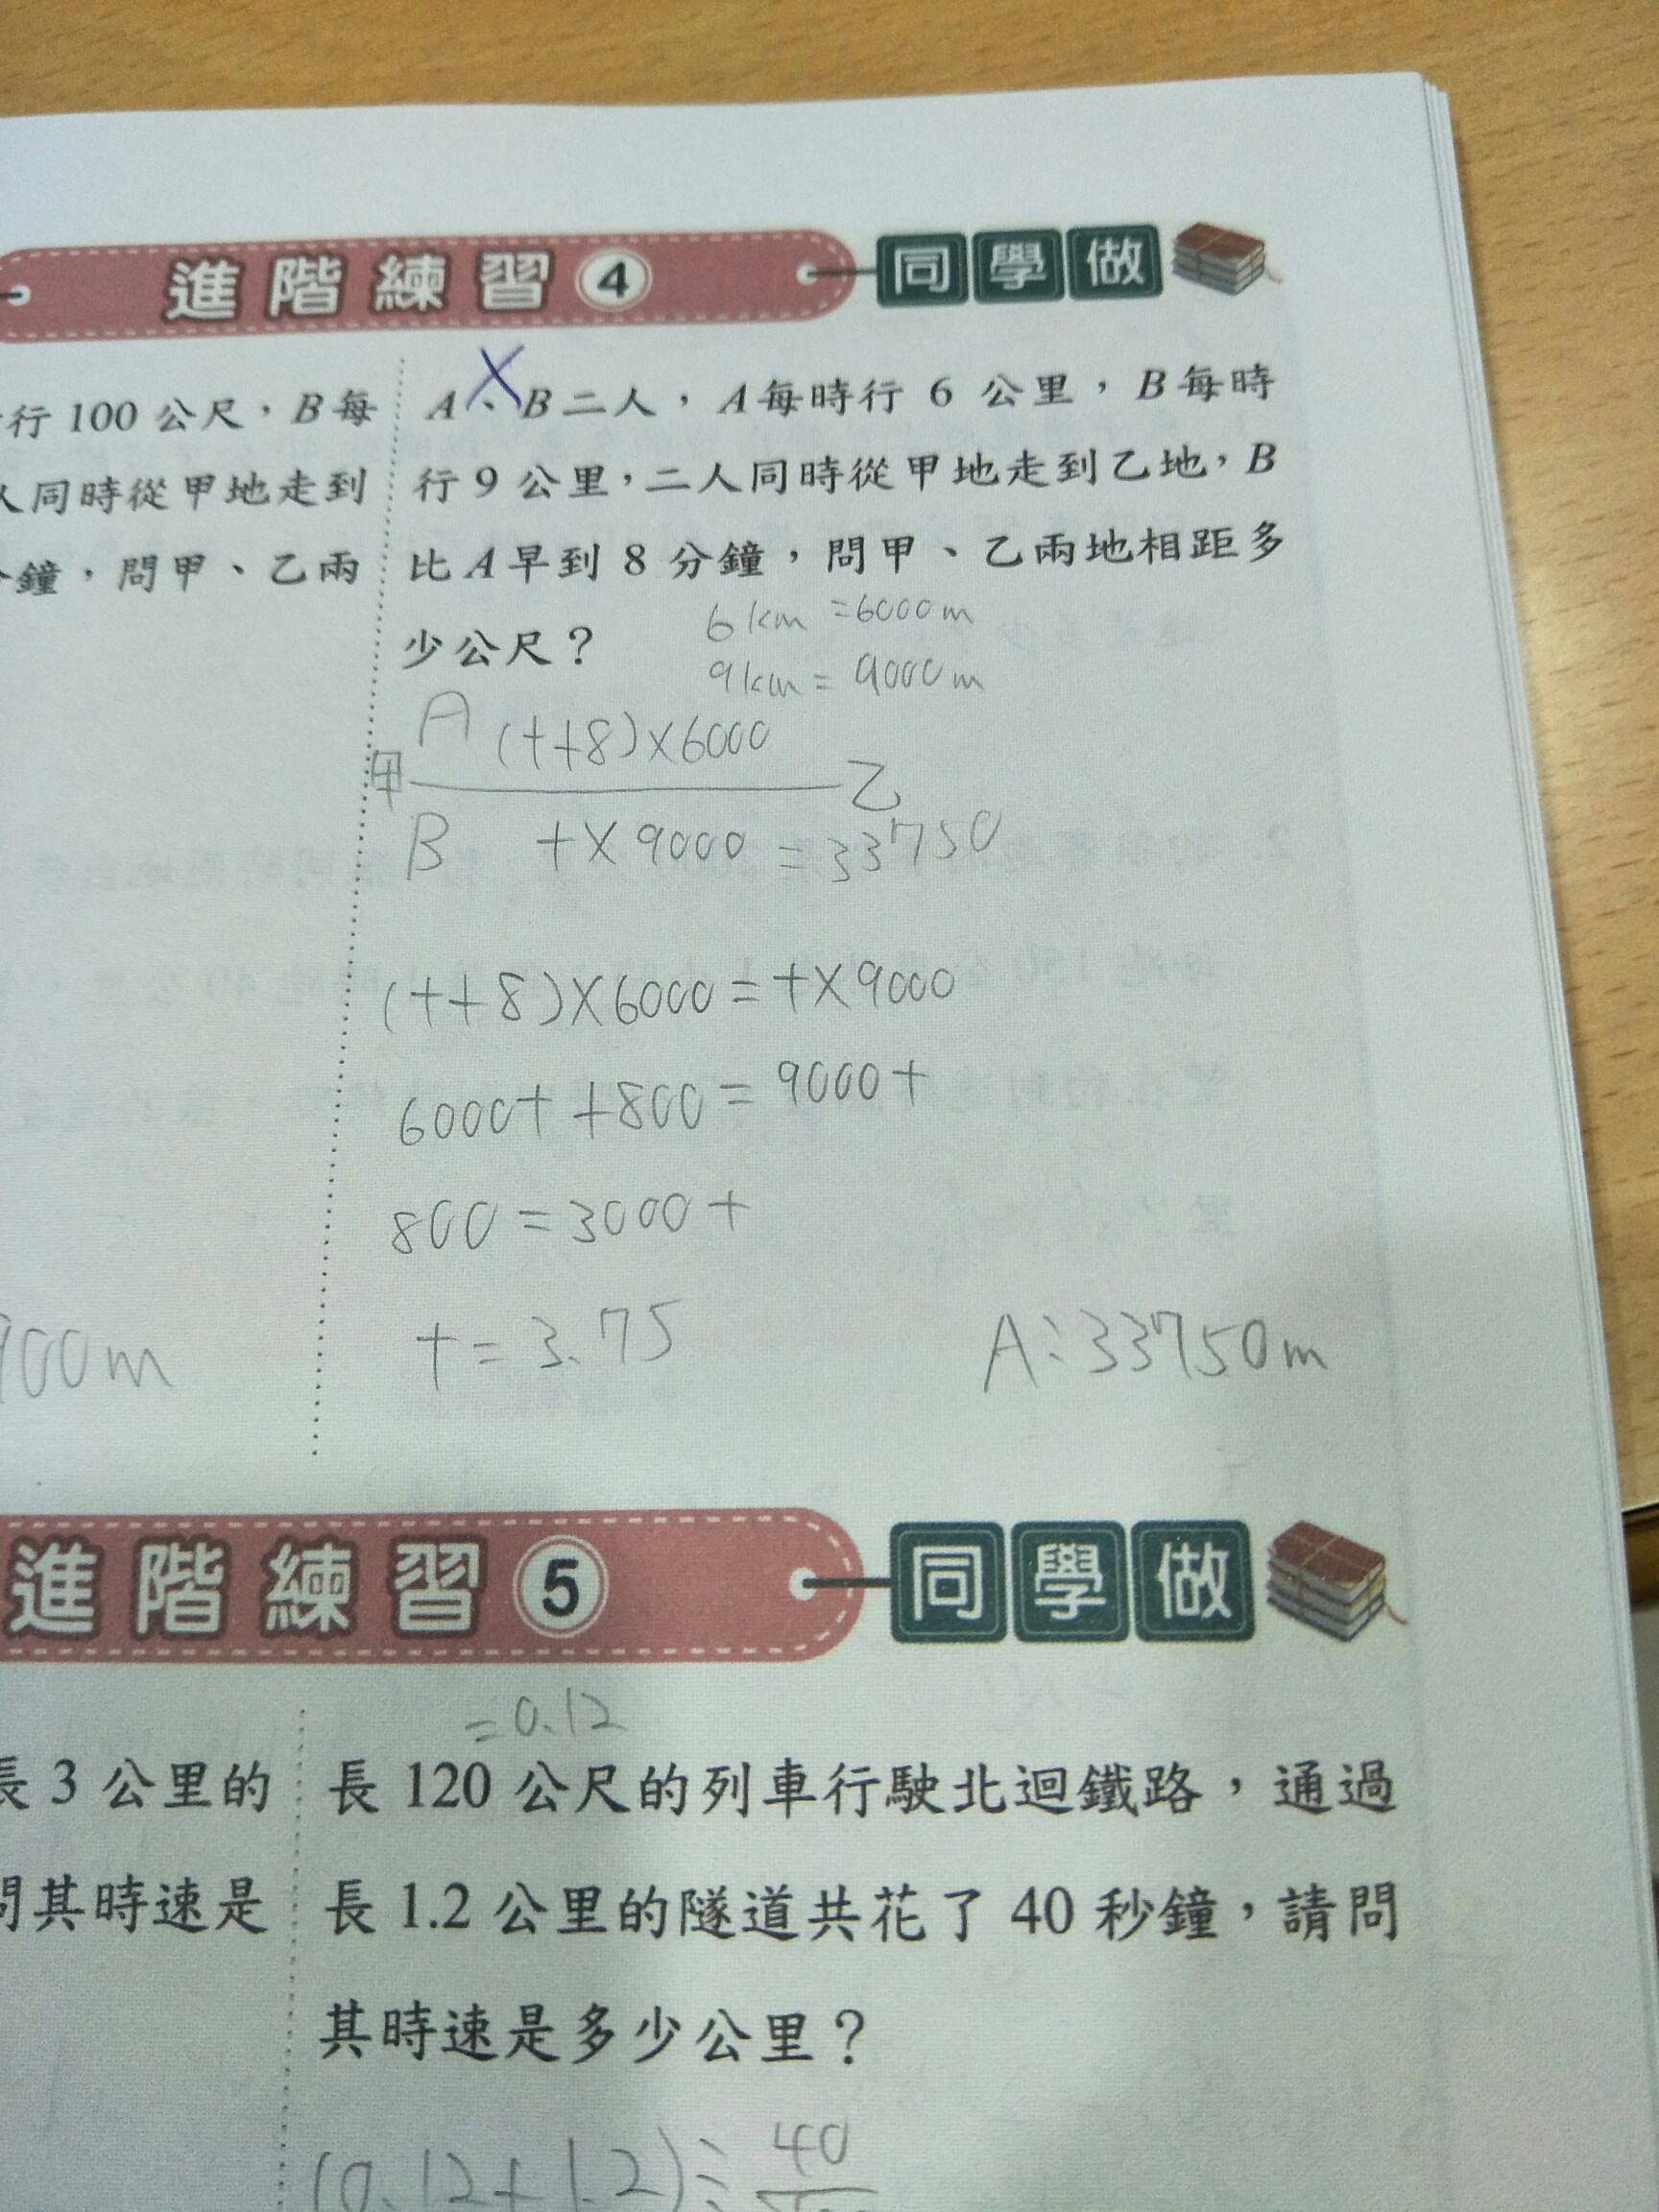 進階練習4 同學做
行100公尺，B每
人同時從甲地走到
分鐘，問甲、乙兩
A、B二人，A每時行6公里，B每時
行9公里，二人同時從甲地走到乙地，B
比A早到8分鐘，問甲、乙兩地相距多
少公尺？
6km=6000m
9km=9000m
A (t+8)×6000
甲 乙
B t×9000=33750
(t+8)×6000=t×9000
6000t+800=9000t
800=3000t
t=3.75
A:33750m
900m
進階練習5 同學做
長3公里的
問其時速是
=0.12
長120公尺的列車行駛北迴鐵路，通過
長1.2公里的隧道共花了40秒鐘，請問
其時速是多少公里？
(0.12+1.2)÷40